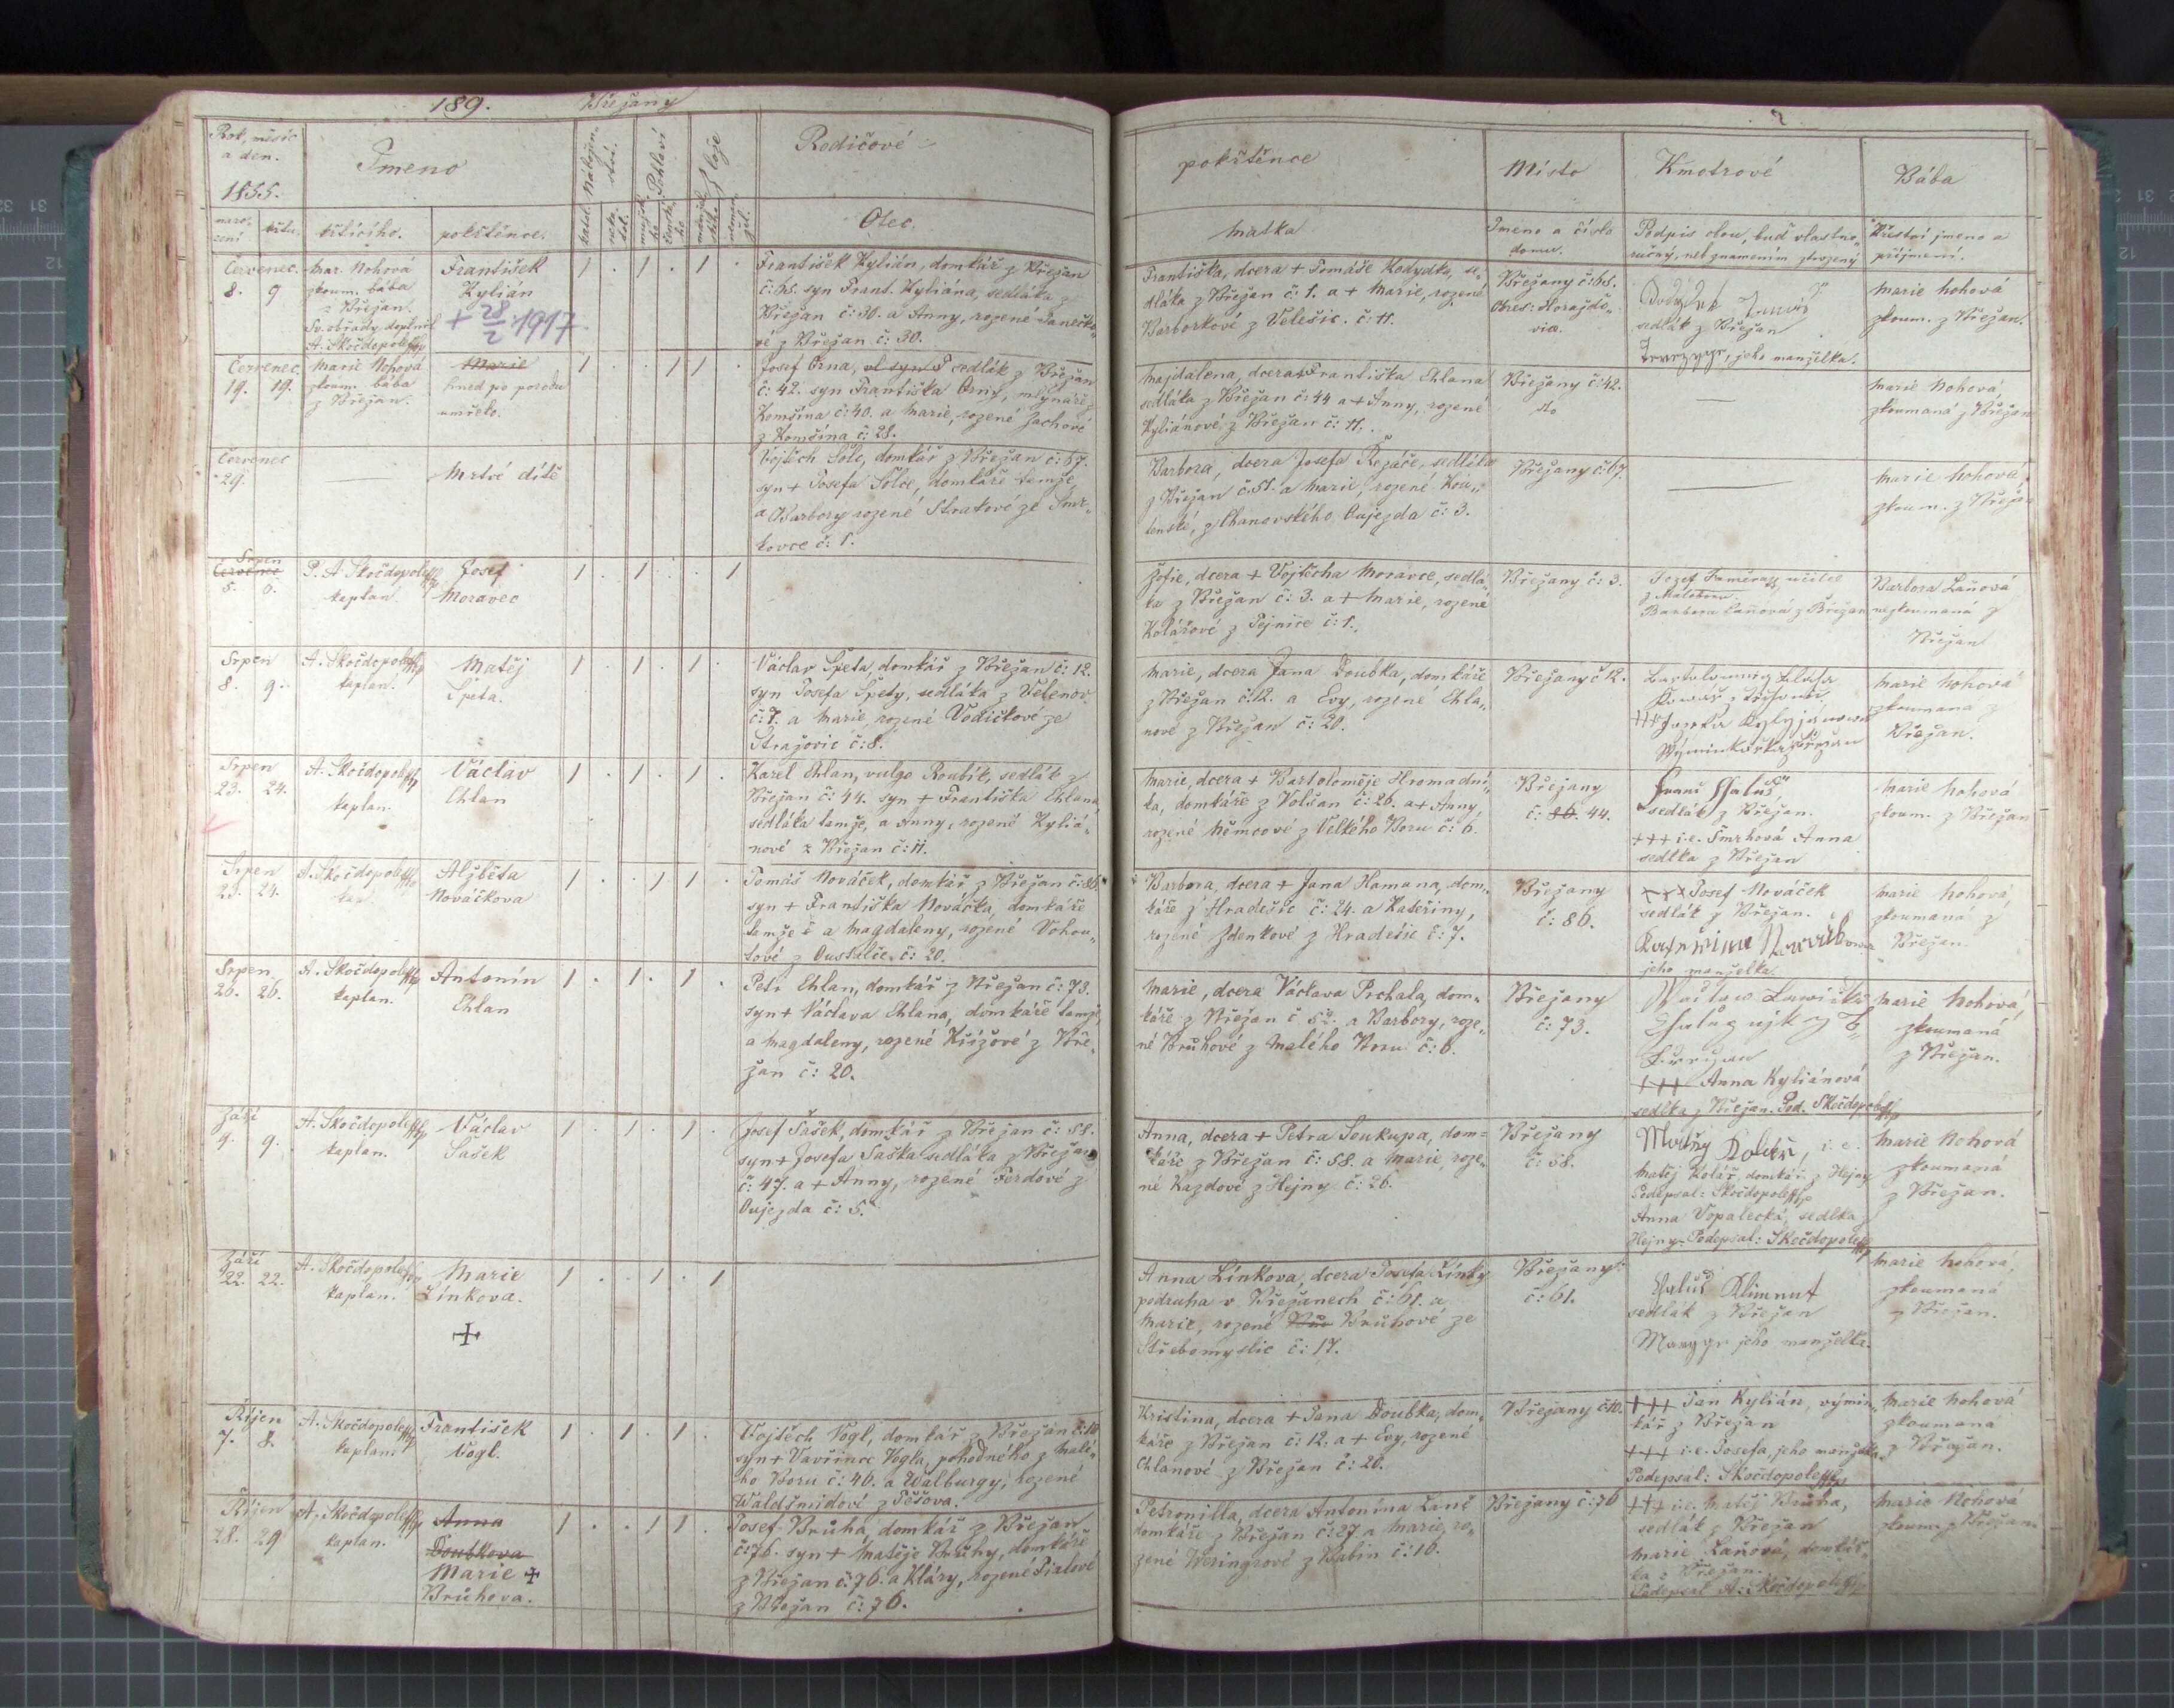 189. Břežany
Rok, měsíc a den. 1855.
Jmeno
Nábožen- ství.
Pohlaví
Lože
Rodičové
naro- zení
křtu
křtícího.
pokřtěnce.
katol.
neka- tol.
mužské- ho
ženské- ho
Otec.
pokřtěnce
Místo
Kmotrové
Bába
matka
Jmeno a číslo domu.
Podpis obou, buď vlastno- ručný, neb znamením stvrzený
Křestní jmeno a příjmení.
Červenec.
8. 9
Mar. Nohová
zkoum. bába
z Břežan.
Sv. obřady doplnil
A. Skočdopole
František
Kylián
+ 28/2 1917
František Kylián, domkář z Břežan
č: 65. syn Frant. Kyliána, sedláka z
Břežan č: 30. a Anny, rozené Janečko-
vé z Břežan č: 30.
Františka, dcera + Tomáše Kodydka, se-
dláka z Břežan č: 1. a + Marie, rozené
Barborkové z Velešic. č: 11.
Břežany č: 65.
Okres: Horažďo-
vice.
sedlák z Břežan
jeho manželka.
Marie Nohová
zkoum. z Břežan.
Červenec
19. 19.
Marie Nohová
zkoum. bába
z Břežan.
Marie
hned po porodu
umřelo.
Josef Orna, sedlák z Břežan
č: 42. syn Františka Orny, mlynáře z
Komšína č: 40. a Marie, rozené Zachové
z Komšína č: 28.
Majdalena, dcera + Františka Chlana
sedláka z Břežan č: 44 a + Anny, rozené
Kyliánové z Břežan č: 11.
Břežany č: 42.
Marie Nohová
zkoumaná z Břežan
Červenec
29.
Mrtvé dítě
Vojtěch Šolc, domkář z Břežan č: 67.
syn + Josefa Šolce, domkáře tamže,
a Barbory rozené Strakové ze Smr-
kovce č: 1.
Barbora, dcera Josefa Řezáče, sedláka
z Břežan č: 51. a Marie, rozené Kou-
lenské, z Chanovského Oujezda č: 3.
Břežany č: 67.
Marie Nohová
zkoum. z Břežan
Srpen
Červenec
5. 6.
P. A Skočdopole
kaplan.
Josef
Moravec
Žofie, dcera + Vojtěcha Moravce, sedlá-
ka z Břežan č: 3. a + Marie, rozené
Kolářové z Pejnice č: 1.
Břežany č: 3.
učitel
z Maloboru.
Barbora Laňová z Břežan
Barbora Laňová
nezkoumaná z
Břežan
Srpen
8. 9.
A. Skočdopole
kaplan.
Matěj
Špeta.
Václav Špeta, domkář z Břežan č: 12.
syn Josefa Špety, sedláka z Velenov
č: 7. a Marie, rozené Vodičkové ze
Stražovic č: 8.
Marie, dcera Jana Doubka, domkáře
z Břežan č: 12. a Evy, rozené Chla-
nové z Břežan č: 20.
Břežany č 12.
Marie Nohová
zkoumana z
Břežan.
Srpen
23. 24.
A. Skočdopole
kaplan.
Václav
Chlan
Karel Chlan, vulgo Roubik, sedlák z
Břežan č: 44. syn + Františka Chlana,
sedláka tamže, a Anny, rozené Kyliá-
nové z Břežan č: 11.
Marie, dcera + Bartoloměje Hromadní-
ka, domkáře z Volšan č: 26. a + Anny
rozené Němcové z Velkého Boru č: 6.
Břežany
č: 86. 44.
sedlák z Břežan.
+++ i.e. Smrhová Anna
sedlka z Břežan
Marie Nohová
zkoum. z Břežan
Srpen
23. 24.
A. Skočdopole
kap.
Alžběta
Nováčkova
Tomáš Nováček, domkář z Břežan č: 86.
syn + Františka Nováčka, domkáře
tamže a Magdaleny, rozené Vohou-
tové z Oustalče č: 20.
Barbora, dcera + Jana Hamana, dom-
káře z Hradešic č: 24. a Kateřiny,
rozené Zdenkové z Hradešic č: 7.
Břežany
č: 86.
+++ Josef Nováček
sedlák z Břežan.
jeho manželka
Marie Nohová,
zkoumaná z
Břežan.
Srpen
26. 26.
A. Skočdopole
kaplan.
Antonín
Chlan
Petr Chlan, domkář z Břežan č: 73.
syn + Václava Chlana, domkáře tamže,
a Magdaleny, rozené Křížové z Bře-
žan č: 20.
Marie, dcera Václava Prchala, dom-
káře z Břežan č 52. a Barbory, roze-
né Brůhové z Malého Boru č: 6.
Břežany
č: 73.
+++ Anna Kyliánová
sedlka z Břežan. Pod. Skočdopole
Marie Nohová,
zkoumaná
z Břežan.
Září
9. 9.
A. Skočdopole
kaplan.
Václav
Sašek
Josef Sašek, domkář z Břežan č: 58.
syn + Josefa Saška sedláka z Břežan
č: 47. a + Anny, rozené Ferdové z
Oujezda č: 5.
Anna, dcera + Petra Soukupa, dom-
káře z Břežan č: 58. a Marie, roze-
né Kazdové z Hejny č: 26.
Břežany
č: 58.
i. e.
Matěj Kolář domkář z Hejny
Podepsal: Skočdopole
Anna Vopalecká, sedlka z
Hejny. Podepsal: Skočdopole
Marie Nohová
zkoumaná
z Břežan.
Září
22. 22.
A. Skočdopole
kaplan.
Marie
Línkova.
+
Anna Línkova, dcera Josefa Línky
podruha v Břežanech č: 61. a
Marie, rozené Brůhové ze
Střebomyslic č: 17.
Břežany
č: 61.
sedlák z Břežan
jeho manželka.
Marie Nohová,
zkoumaná
z Břežan.
Říjen
7. 8.
A. Skočdopole
kaplan.
František
Vogl.
Vojtěch Vogl, domkář z Břežan č: 10
syn + Vavřince Vogla, pohodného z Malé-
ho Boru č: 46. a Walburgy, rozené
Waldšmidové z Těšova.
Kristina, dcera + Jana Doubka, dom-
káře z Břežan č: 12. a + Evy, rozené
Chlanové z Břežan č: 20.
Břežany č: 10.
+++ Jan Kylián, výmin-
kář z Břežan
+++ i.e. Josefa, jeho manželka.
Podepsal: Skočdopole
Marie Nohová
zkoumana
z Břežan.
Říjen
28. 29
A. Skočdopole
kaplan.
Anna
Doubkova
Marie +
Brůhova.
Josef Brůha, domkář z Břežan
č: 76. syn + Matěje Brůhy, domkáře
z Břežan č: 76. a Kláry, rozené Fialové
z Břežan č: 76.
Petronilla, dcera Antonína Laně
domkáře z Břežan č: 27 a Marie, ro-
zené Weringrové z Babin č: 16.
Břežany č: 76
+++ i.e. Matěj Brůha,
sedlák z Břežan
Marie Laňová, domkář-
ka z Břežan.
Podepsal A. Skočdopole
Marie Nohová
zkoum. z Břežan